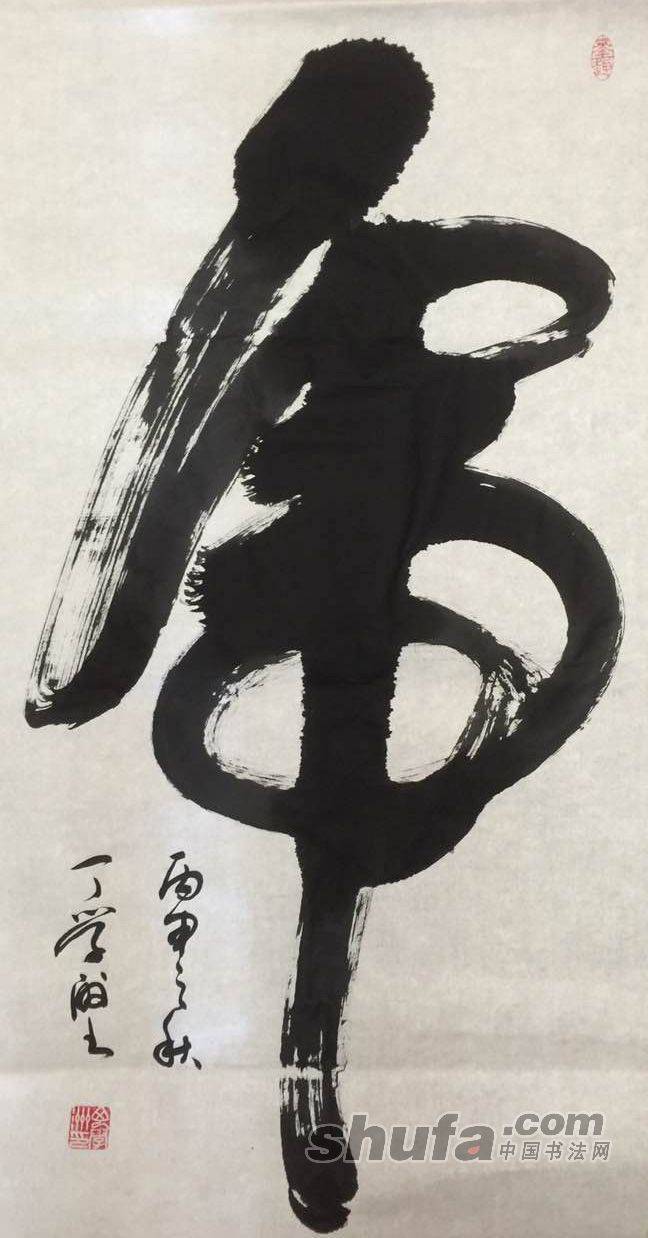 虎
丙申之秋
丁学
shufa.com
中国书法网